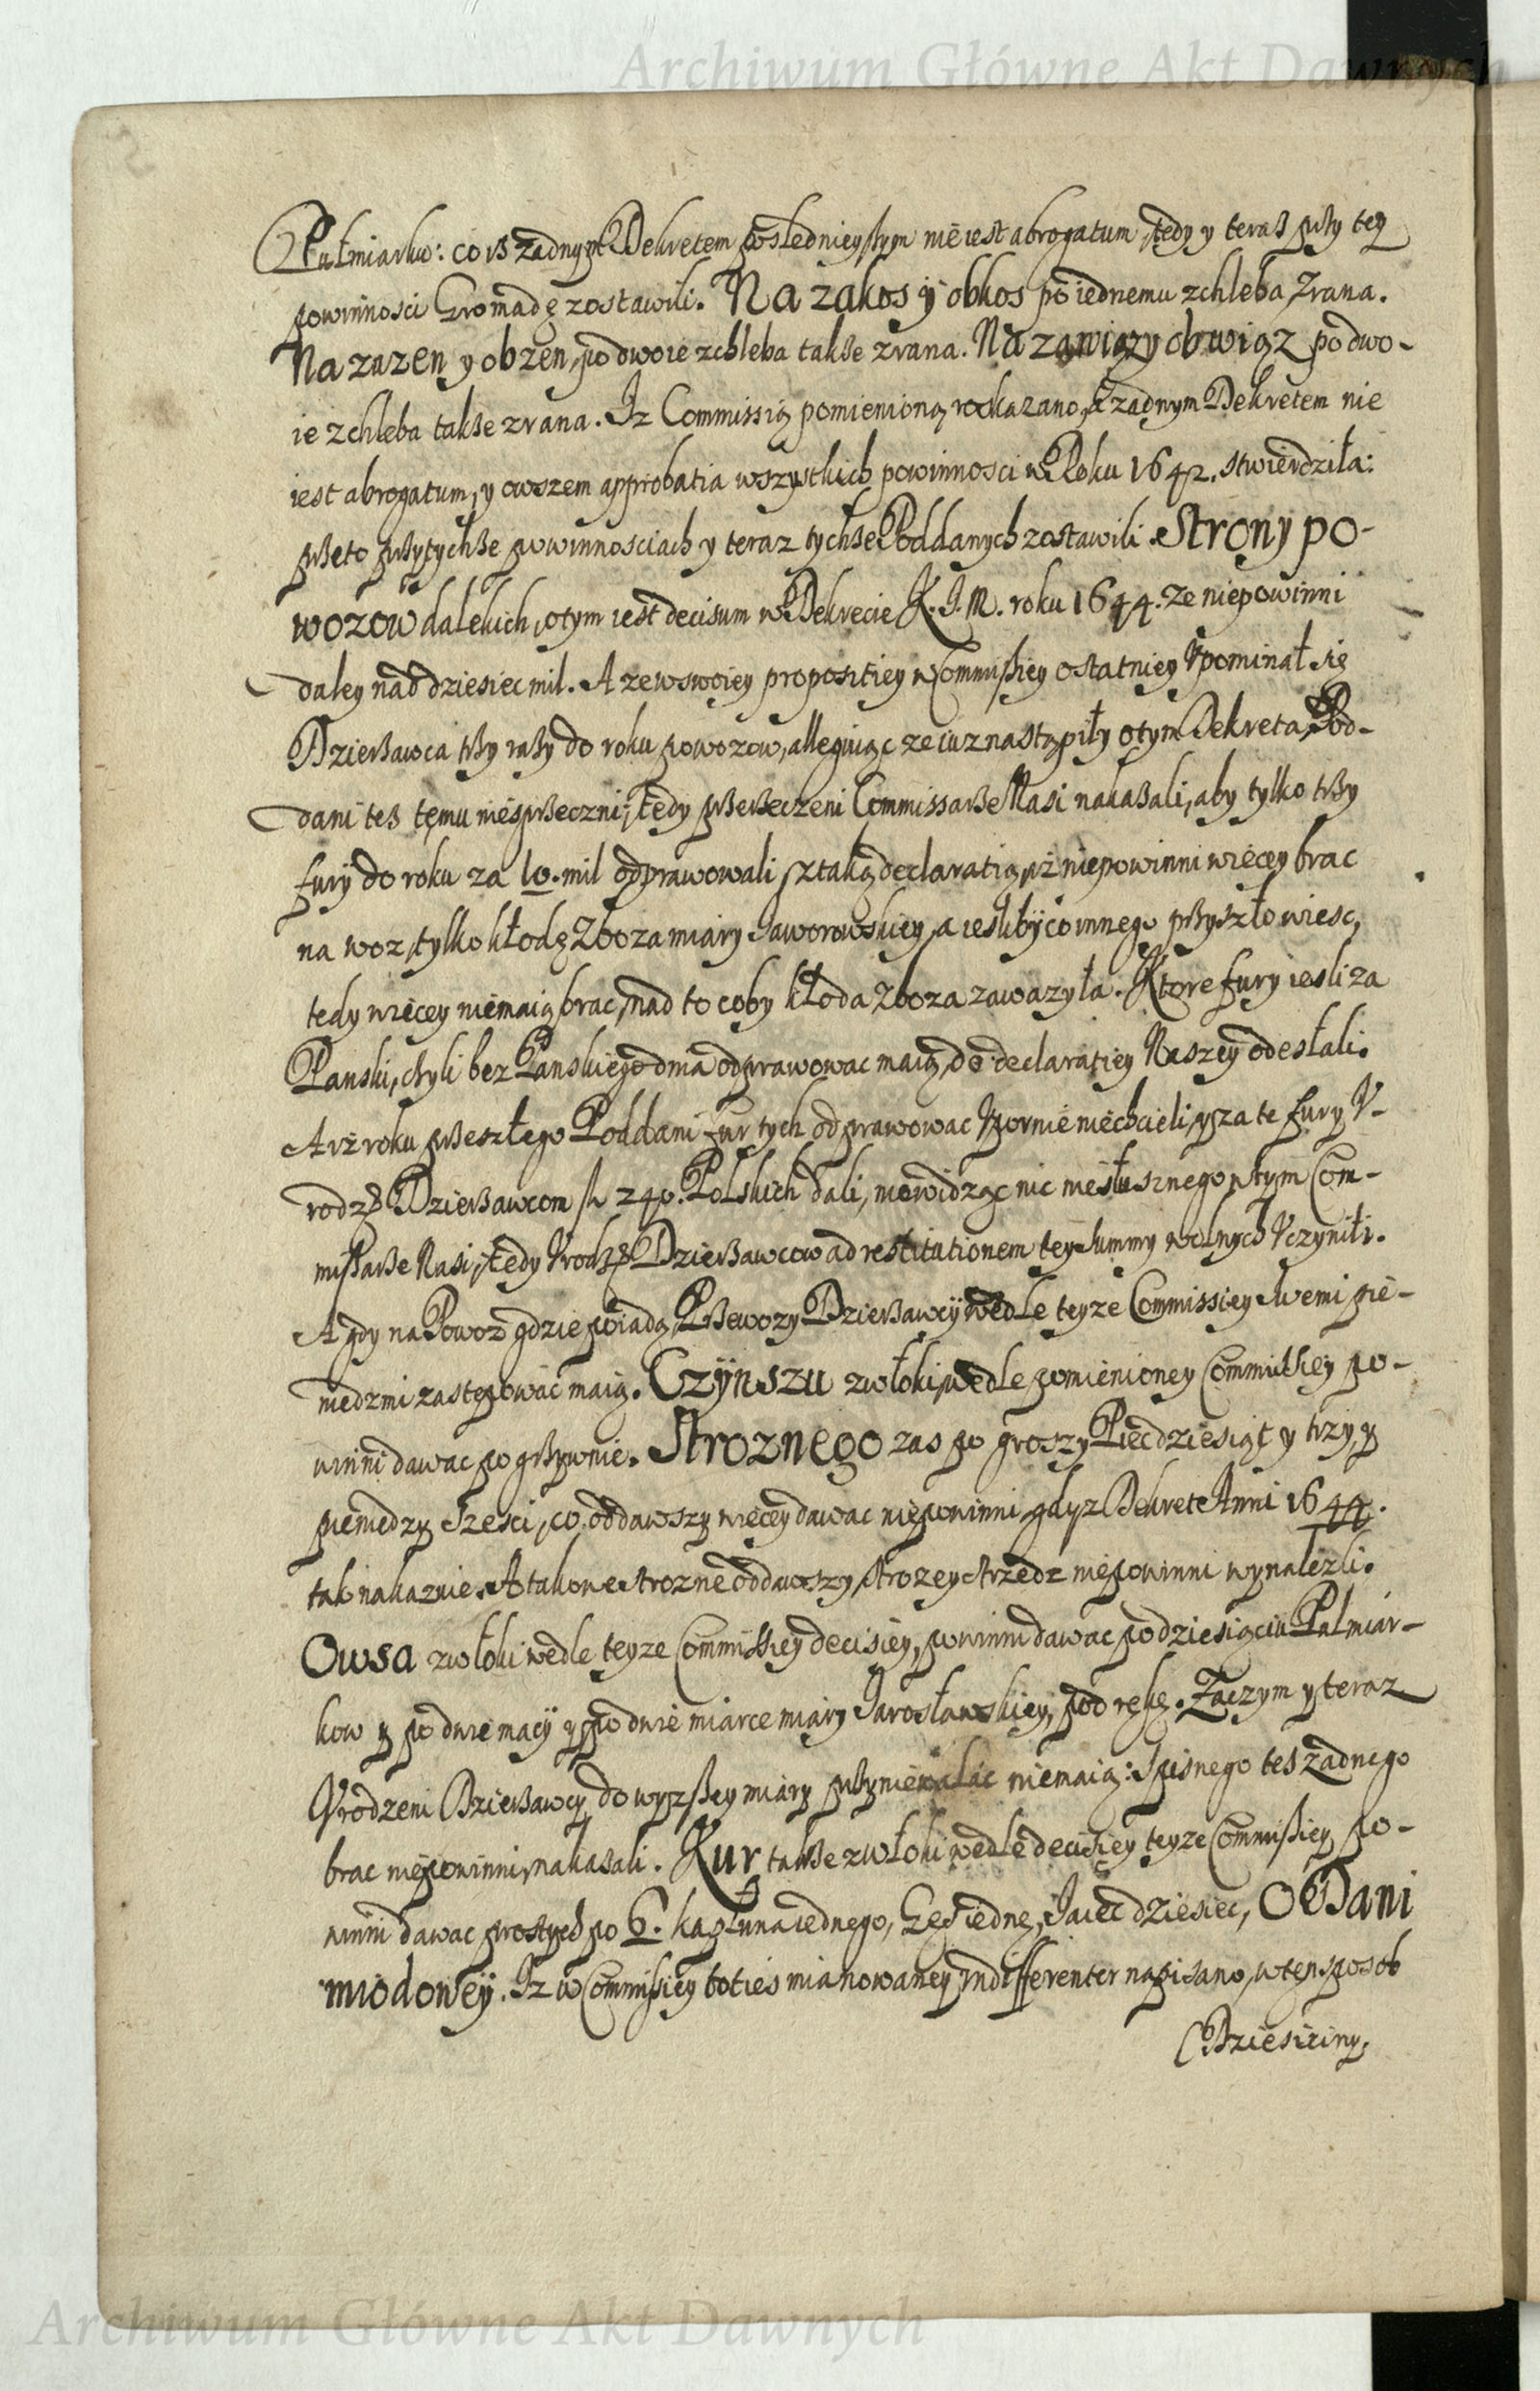 Archiwum Główne Akt Dawnych
Pułmiarku: co iż żadnym Dekretem poslednieyszym nie iest abrogatum, tedy y teraz przy tey
powinnosci Gromadę zostawili. Na zakos y obkos po iednemu z chleba zrana.
Na zazen y obzen, po dwoie z chleba także zrana. Na zawiąz y obwiąz po dwo-
ie z chleba także zrana. Iz Commissią pomienioną rozkazano, a żadnym Dekretem nie
iest abrogatum, y owszem approbatia wszystkich powinnosci w Roku 1642. stwierdziła:
przeto przy tychże powinnosciach y teraz tychże Poddanych zostawili. Strony po-
wozow dalekich, o tym iest decisum w Dekrecie K. I. M. roku 1644. ze niepowinni
daley nad dziesiec mil. A ze w swoiey propositiey w Commissiey ostatniey Vpominał się
Dzierżawca trzy razy do roku powozow, alleguiąc ze iuz nastąpiły o tym Dekreta, Pod-
dani też temu niesprzeczni, tedy przerzeczeni Commissarze Nasi nakazali, aby tylko trzy
fury do roku za 10. mil odprawowali, z taką declaratią, iż niepowinni wiecey brac
na woz, tylko kłodę zboza miary Jaworowskiey, a iesliby co innego przyszło wiesc,
tedy wiecey niemaią brac, nad to coby kłoda zboza zawazyła. Ktore fury iesli za
Panski, czyli bez Panskiego dnia odprawowac maią, do declaratiey Naszey odesłali.
A iż roku przeszłego Poddani fur tych odprawowac Vpornie niechcieli, y za te fury V-
rodz. Dzierżawcom fl 240. Polskich dali, niewidząc nic niesłusznego w tym Com-
missarze Nasi, tedy Vrodz. Dzierżawcow ad restitutionem tey Summy wolnych Vczynili.
A gdy na Powoz gdzie poiadą, Przewozy Dzierżawcy wedle teyze Commissiey Swemi pie-
niedzmi zastępowac maią. Czynszu z włoki, wedle pomienioney Commissiey po-
winni dawac po grzywnie. Stroznego zas po groszy Piecdziesiąt y trzy, y
pieniedzy szesci, co oddawszy wiecey dawac niepowinni, gdyz Dekret Anni 1644.
tak nakazuie. A takowe strozne oddawszy, strozey strzedz niepowinni wynalezli.
Owsa z włoki wedle teyze Commissiey decisiey, powinni dawac po dziesiąciu Pałmiar-
kow y po dwie macy y po dwie miarce miary Jarosławskiey, pod rękę. Zaczym y teraz
Vrodzeni Dzierżawcy do wyzszey miary przyniewalac niemaią: Spisnego też żadnego
brac niepowinni, nakazali. Kur także z włoki wedle decisiey teyze Commissiey po-
winni dawac prostych po 6. kapłuna iednego, Gęs iednę, Jaiec dziesiec, O Dani
miodowey. Iz w Commissiey toties mianowaney indifferenter napisano, w ten sposob
Dziesiciny,
Archiwum Główne Akt Dawnych